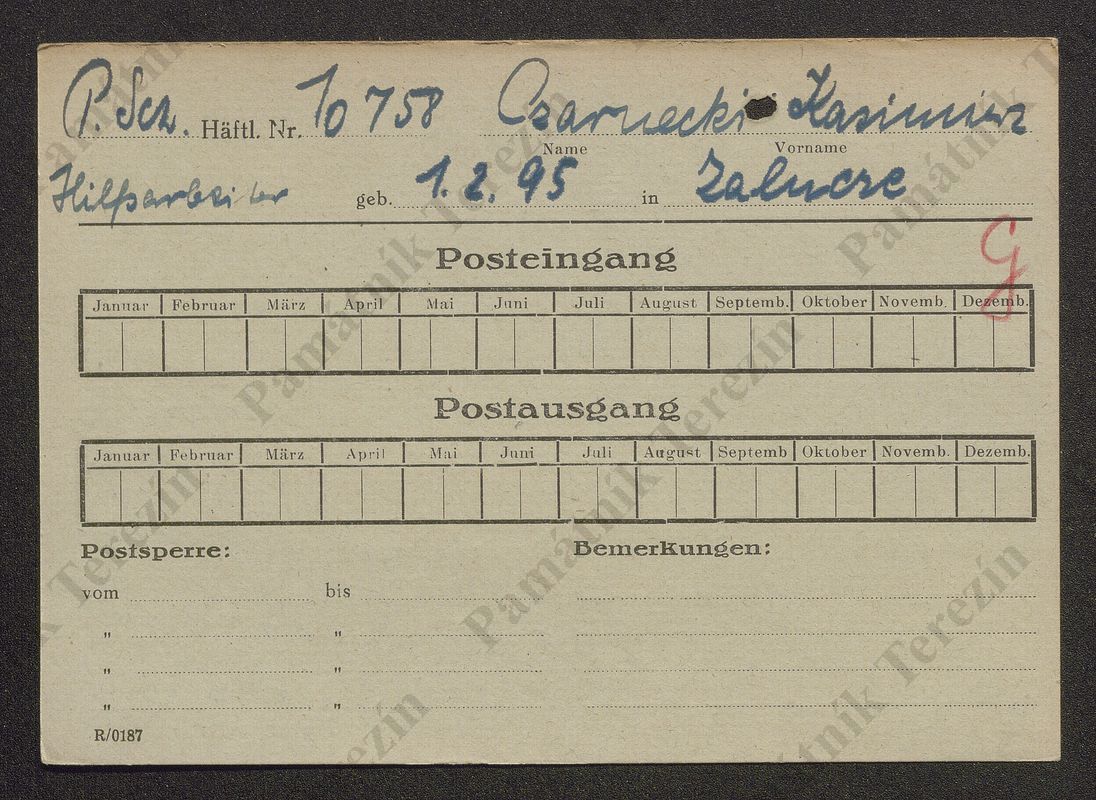 P. Sch. Häftl. Nr. 10758 Czarnecki Kasimierz
Name Vorname
Hilfsarbeiter geb. 1. 2. 95 in Zalucze
G
Posteingang
Januar Februar März April Mai Juni Juli August Septemb. Oktober Novemb. Dezemb.
Postausgang
Januar Februar März April Mai Juni Juli August Septemb Oktober Novemb. Dezemb.
Postsperre: Bemerkungen:
vom bis
" "
" "
" "
R/0187
Památník Terezín